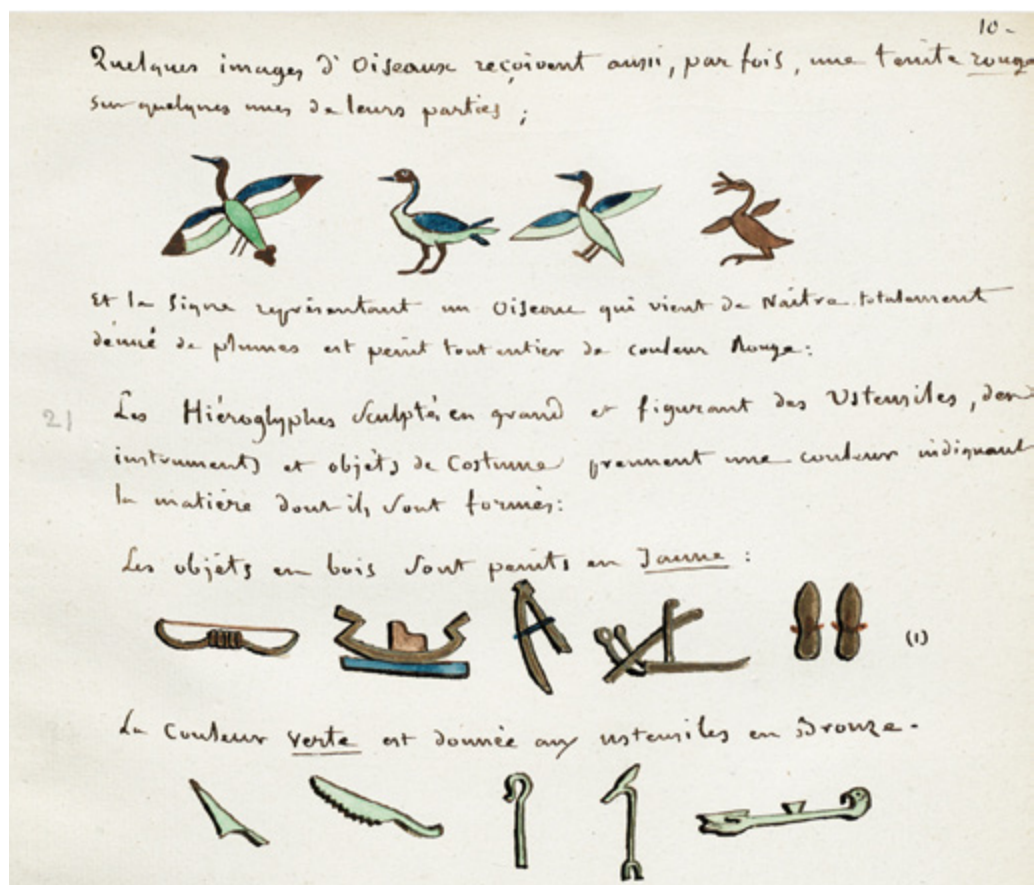 10-
Quelques images d'Oiseaux reçoivent aussi, par fois, une teinte rouge
sur quelques unes de leurs parties ;
Et le signe représentant un Oiseau qui vient de Naitre totalement
dénué de plumes est peint tout entier de couleur Rouge :
21
Les Hiéroglyphes sculptés en grand et figurant des Ustensiles, des
instruments et objéts de Costume prennent une couleur indiquant
la matière dont ils sont formés :
Les objéts en bois sont peints en Jaune :
(1)
La Couleur verte est donnée aux ustensiles en Bronze -